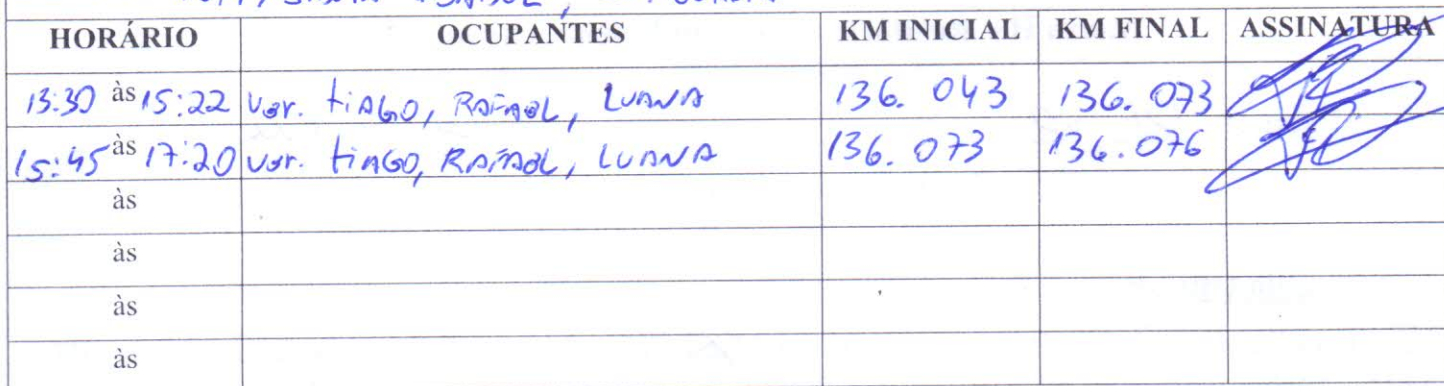 HORÁRIO OCUPANTES KM INICIAL KM FINAL ASSINATURA
13:30 às 15:22 Ver. tiAGO, RAFAEL, LUANA 136.043 136.073
15:45 às 17:20 Ver. tiAGO, RAFAEL, LUANA 136.073 136.076
às
às
às
às